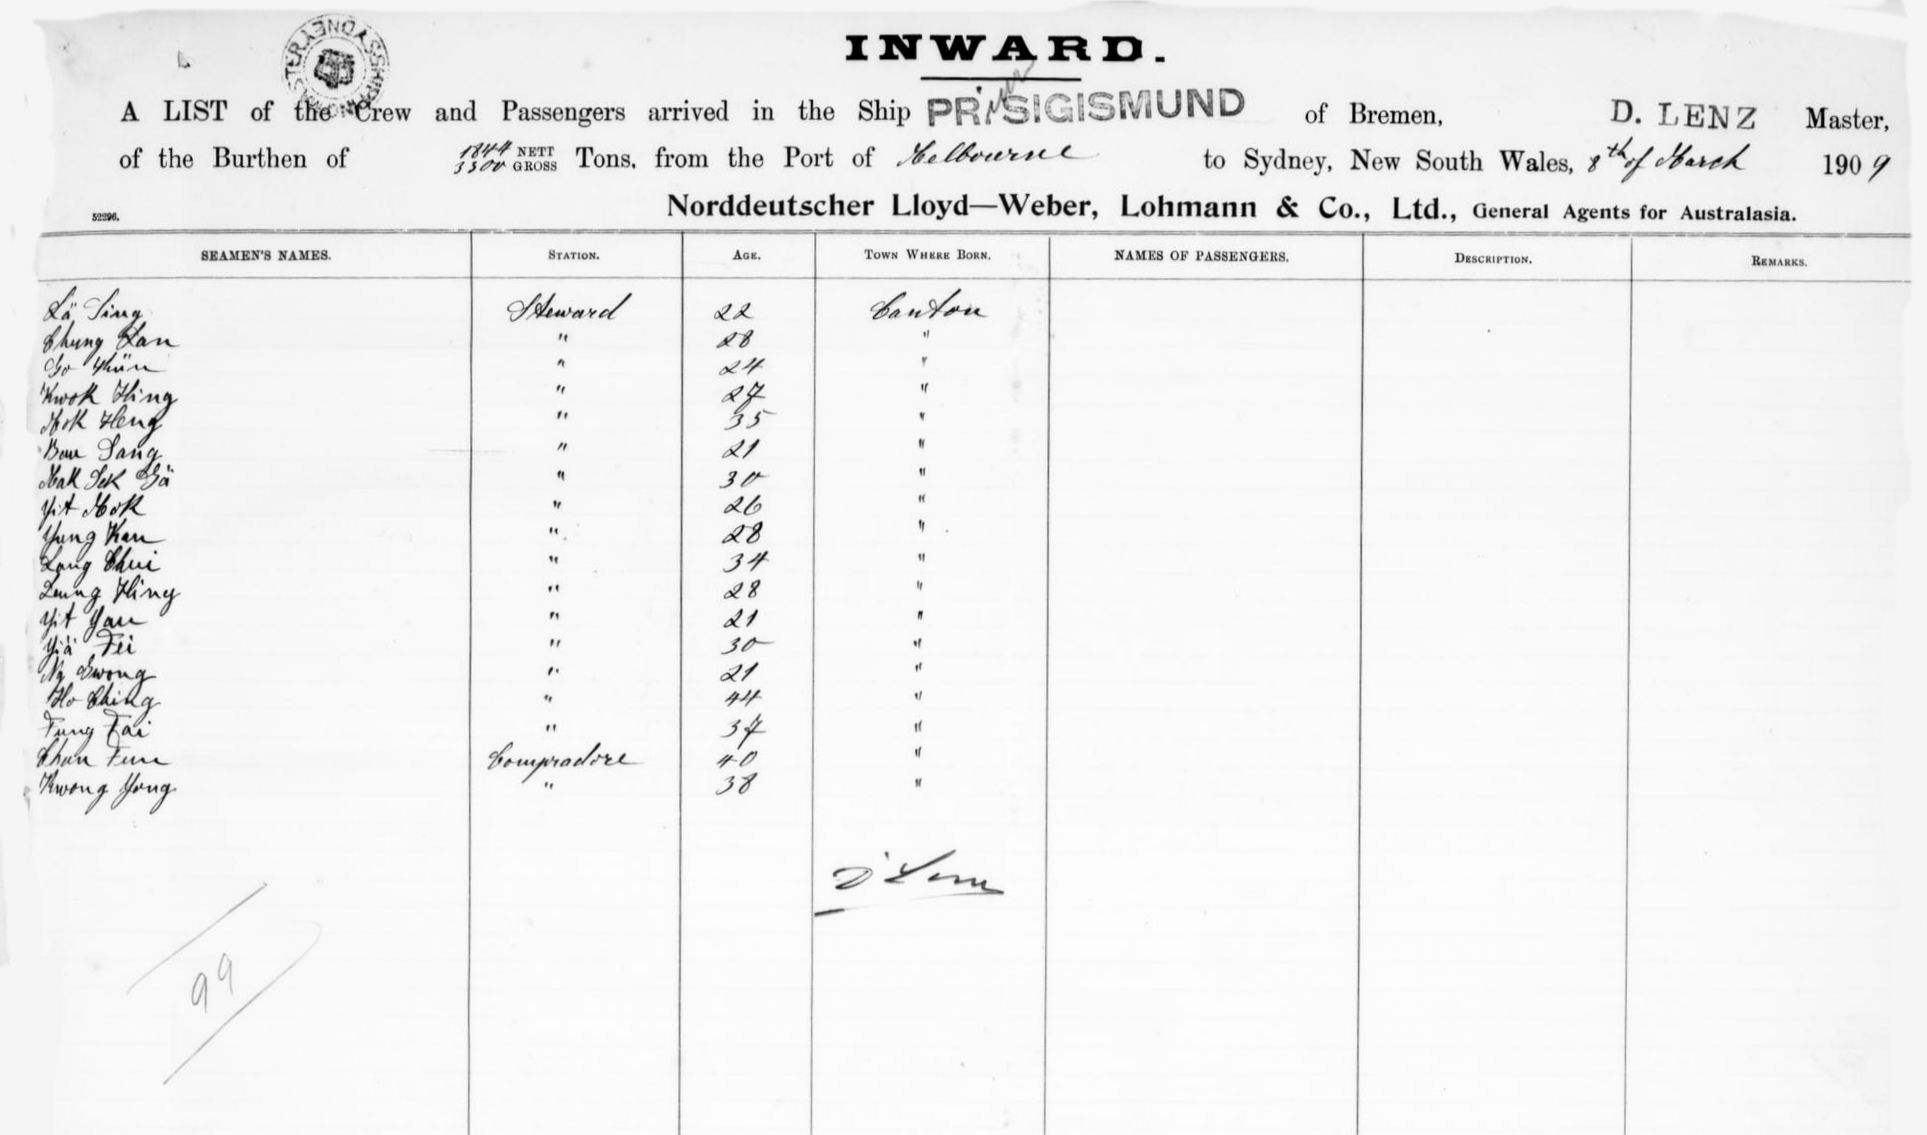 INWARD.
A LIST of the Crew and Passengers arrived in the Ship PR. SIGISMUND of Bremen, D. LENZ Master,
of the Burthen of 1844 NETT 3300 GROSS Tons, from the Port of Melbourne to Sydney, New South Wales, 8th of March 1909
52296.
Norddeutscher Lloyd—Weber, Lohmann & Co., Ltd., General Agents for Australasia.
SEAMEN'S NAMES. STATION. AGE. TOWN WHERE BORN. NAMES OF PASSENGERS. DESCRIPTION. REMARKS.
Lä Sing Steward 22 Canton
Chung Lan " 28 "
Go " 24 "
Kwok Hing " 27 "
Mok Heng " 35 "
Bau Sang " 21 "
Mak Sek " 30 "
Yit Mok " 26 "
Yung Kan " 28 "
Long Chui " 34 "
Leung Hing " 28 "
Yit Yau " 21 "
Yiä Fei " 30 "
Ng Gwong " 21 "
Ho Ching " 44 "
Fung Tai " 37 "
Chan Fun Compradore 40 "
Kwong Yong " 38 "
D Lenz
99